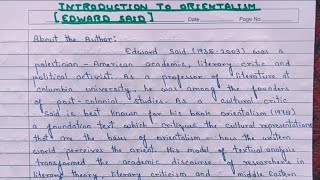 INTRODUCTION TO ORIENTALISM
[EDWARD SAID]
Date
Page No.
About the Author:
Edward Said (1935-2003) was a
palestinian - American academic, literary critic and
political activist. As a professor of literature at
columbia university, he was among the founders
of post-colonial studies. As a cultural critic
said is best known for his book orientalism (1978)
a foundation text which critiques the cultural representations
that are the bases of orientalism - how the western
world perceives the orient. His model of textual analysis
transformed the academic discourse of researchers in
literary theory, literary criticism and middle Eastern